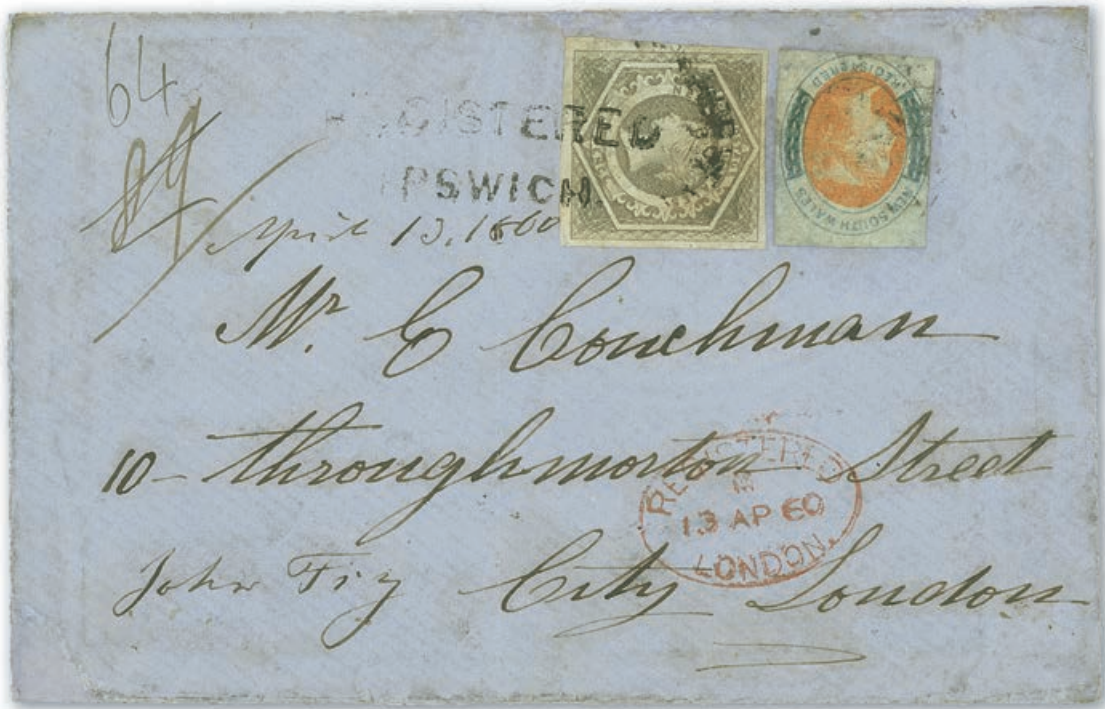 64
REGISTERED
IPSWICH.
April 13, 1860
REGISTERED
NEW SOUTH WALES
Mr. E Couchman
10 - Throughmorton Street
REGISTERED
13 AP 60
LONDON.
John Fry City London